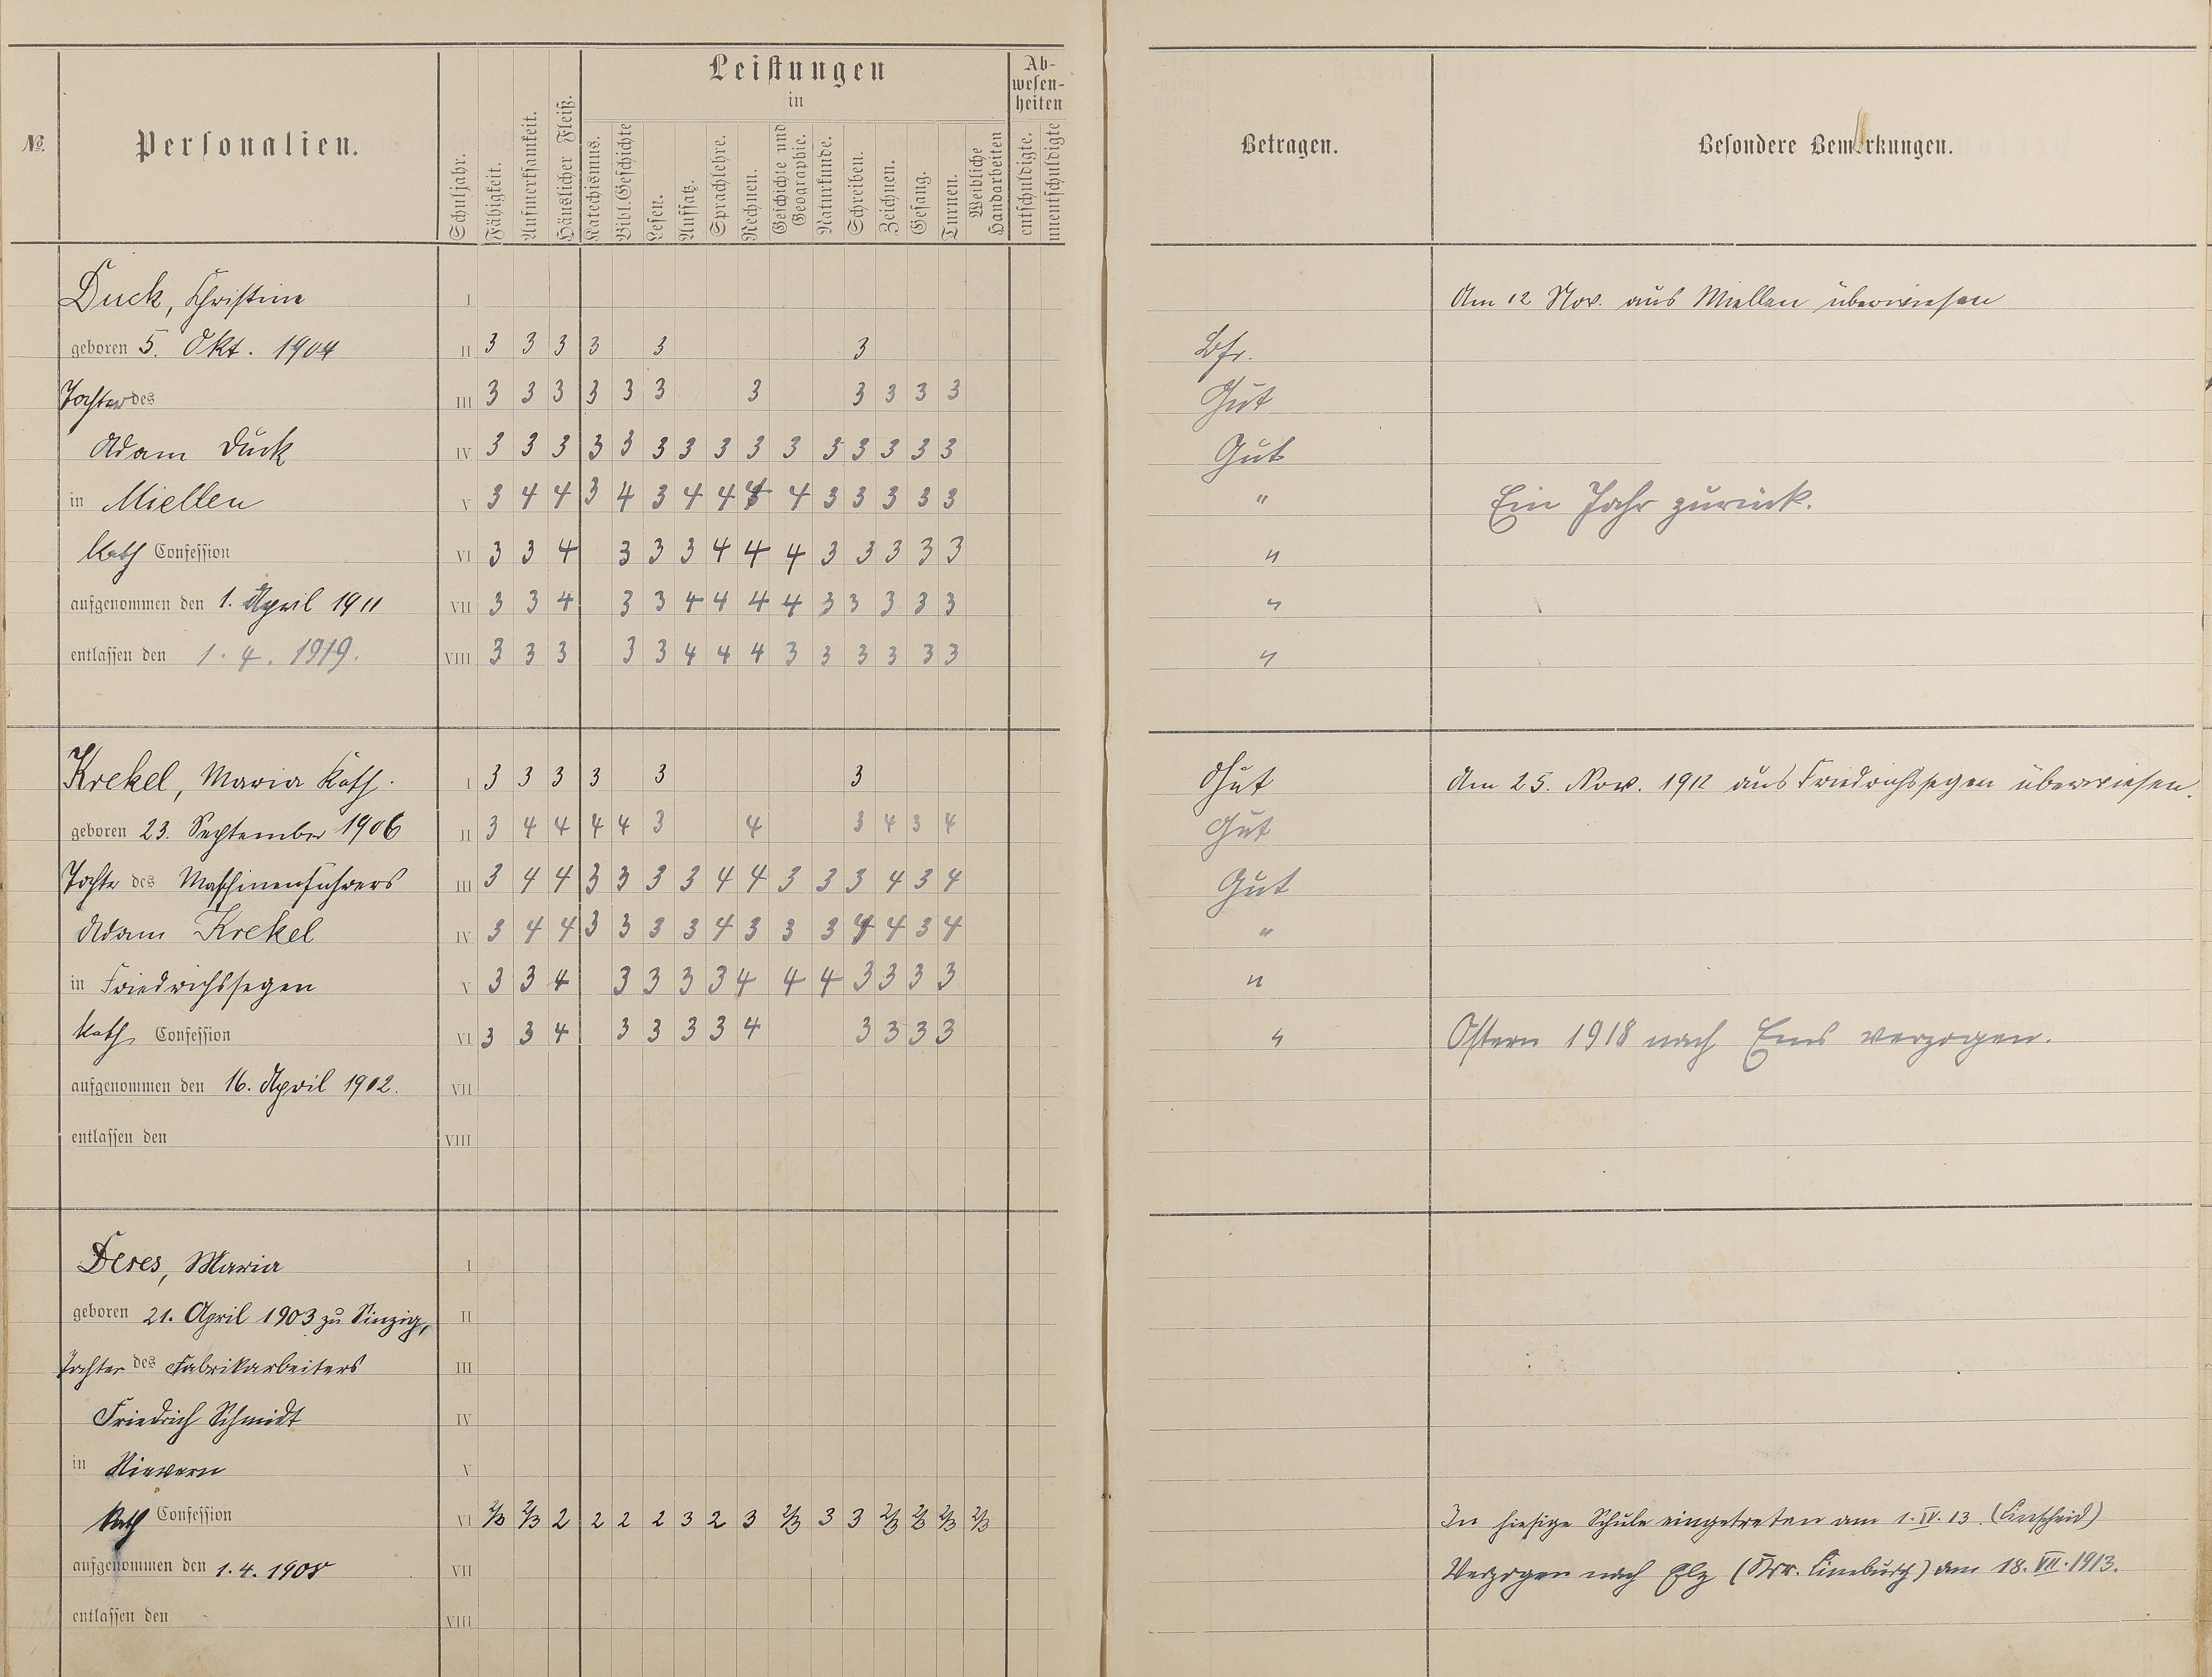 Leistungen
in
Ab-
wesen-
heiten
№ Personalien. Schuljahr. Fähigkeit. Aufmerksamkeit. Häuslicher Fleiß. Katechismus. Bibl. Geschichte Lesen. Aufsatz. Sprachlehre. Rechnen. Geschichte und Geographie. Naturkunde. Schreiben. Zeichnen. Gesang. Turnen. Weibliche Handarbeiten entschuldigte. unentschuldigte Betragen. Besondere Bemerkungen.
Duck, Christine I Am 12 Nov. aus Miellen überwiesen
geboren 5. Okt. 1904 II 3 3 3 3 3 3 Bfr.
Tochter des III 3 3 3 3 3 3 3 3 3 3 3 Gut
Adam Duck IV 3 3 3 3 3 3 3 3 3 3 3 3 3 3 3 Gut
in Miellen V 3 4 4 3 4 3 4 4 4 4 3 3 3 3 3 " Ein Jahr zurück.
Kath Confession VI 3 3 4 3 3 3 4 4 4 3 3 3 3 3 "
aufgenommen den 1. April 1911 VII 3 3 4 3 3 4 4 4 4 3 3 3 3 3 "
entlassen den 1. 4. 1919. VIII 3 3 3 3 3 4 4 4 3 3 3 3 3 3 "
Krekel, Maria Kath. I 3 3 3 3 3 3 Gut Am 25. Nov. 1912 aus Friedrichssegen überwiesen.
geboren 23. September 1906 II 3 4 4 4 4 3 4 3 4 3 4 Gut
Tochter des Maschinenführers III 3 4 4 3 3 3 3 4 4 3 3 3 4 3 4 Gut
Adam Krekel IV 3 4 4 3 3 3 3 4 3 3 3 4 4 3 4 "
in Friedrichssegen V 3 3 4 3 3 3 3 4 4 4 3 3 3 3 "
Kath. Confession VI 3 3 4 3 3 3 3 4 3 3 3 3 " Ostern 1918 nach Ems verzogen.
aufgenommen den 16. April 1912. VII
entlassen den VIII
Deres, Maria I
geboren 21. April 1903 zu Sinzig, II
Tochter des Fabrikarbeiters III
Friedrich Schmidt IV
in Nievern V
Kath Confession VI 2/3 2/3 2 2 2 2 3 2 3 2/3 3 3 2/3 2/3 2/3 2/3 In hiesige Schule eingetreten am 1. IV. 13.
aufgenommen den 1. 4. 1908 VII Verzogen nach Elz (Krr. Limburg) am 18. VII. 1913.
entlassen den VIII